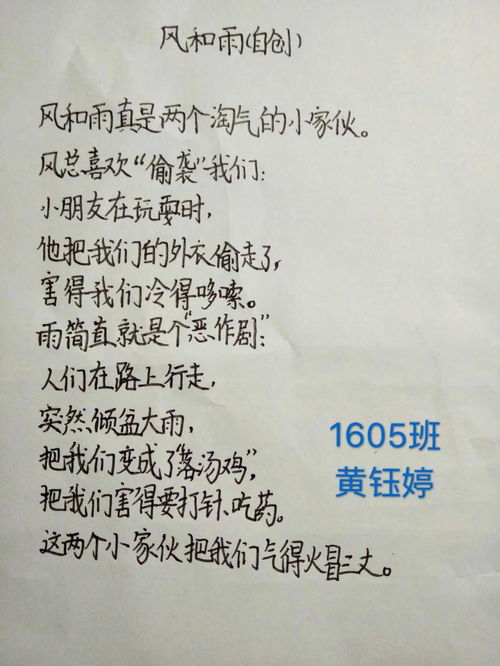 风和雨(自创)
风和雨真是两个淘气的小家伙。
风总喜欢“偷袭”我们:
小朋友在玩耍时,
他把我们的外衣偷走了,
害得我们冷得哆嗦。
雨简直就是个“恶作剧”:
人们在路上行走,
突然倾盆大雨,
把我们变成了“落汤鸡”,
把我们害得要打针、吃药。
这两个小家伙把我们气得火冒三丈。
1605班
黄钰婷